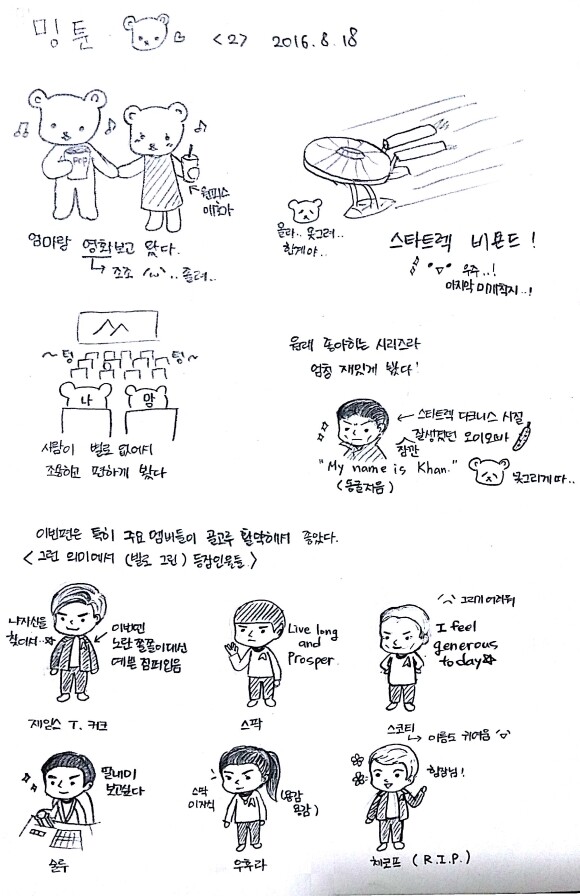 밍툰 <2> 2016.8.18
POP
원피스
애호가
엄마랑 영화보고 왔다.
조조 /ω\ .. 졸려..
몰라.. 못그려..
한계야..
스타트렉 비욘드!
우주..!
마지막 미개척지..!
~텅 텅~
나 맘
사람이 별로 없어서
조용하고 편하게 봤다
원래 좋아하는 시리즈라
엄청 재밌게 봤다!
← 스타트렉 다크니스 시절
잘생겼던 오이오빠
잠깐
"My name is Khan."
(동굴저음)
못그리게따..
이번편은 특히 주요 멤버들이 골고루 활약해서 좋았다.
<그런 의미에서 (별로 그린) 등장인물들>
나자신을
찾아서..☆
이번엔
노란 쫄쫄이대신
예쁜 점퍼입음
제임스 T. 커크
Live long
and
Prosper.
스팍
그리기 어려워
I feel
generous
today☆
스코티
이름도 귀여움 'ㅅ'
딸내미
보고싶다
술루
스팍
이자식
(용감
용감)
우후라
함장님!
체코프 (R.I.P.)